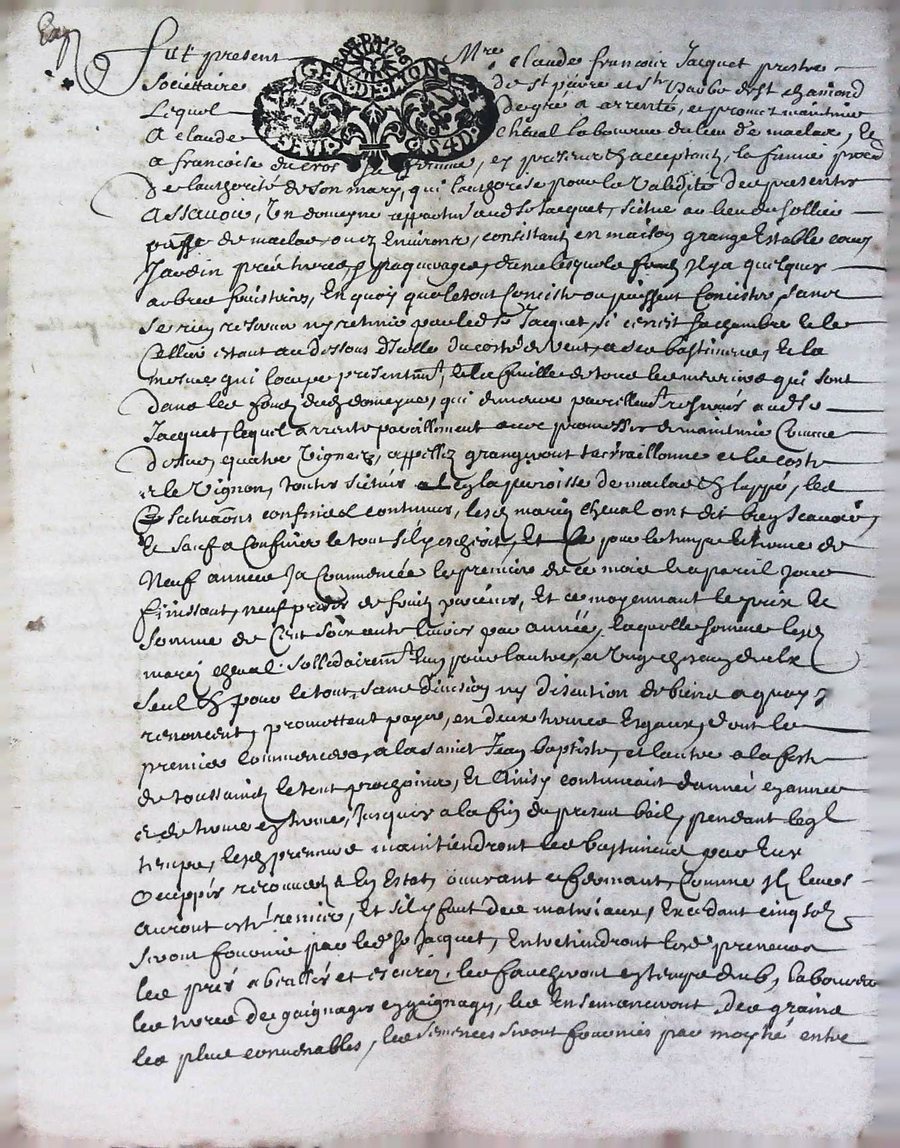 Fut present Mre claude francois Jacquet prestre
Societtaire de st pierre et ste barbe de st chamond
Lequel de gre a arrenté, et promet maintenir
A claude cheval laboureur du lieu de maclas, Et
GEN·DE·LION
SEVL S4D
a francoise ducros sa femme, ici presens & acceptant, la femme proced
De lauthorité de son mary, qui lauthorise pour la validité des presentes
Assavoir, Un domeyne appartenant aud sr Jacquet, scitué au lieu du sollier
paroisse de maclas, ou es Environs, consistant en maison grange Estable cour
Jardin prés terres & pasquerages, dans lesquels fonds il y a quelques
arbres fruitiers, En quoy que le tout conciste ou puissent Concister, sans
se rien reserver ny retenir par led sr Jacquet, si cenest sa chambre et le
Cellier estant au dessous d'Icelle du costé de vent, a ses bastiments, Et la
mesme qui loccupe presentemt, Et la fueille de tous les meuriers qui sont
dans les fonds dud domeyne, qui demeure pareillemt reservés aud sr
Jacquet, lequel arrente pareillement avec promesse de maintenir Comme
dessus, quatre vignes, appellez grangeront, et la coste
et le vignon, toutes scituées en la paroisse de maclas & lappé, les
scituaons confins & contenus, lesd mariez cheval ont dit bien scavoir,
Et sauf a Confiner le tout s'il y escheoit, Et ce pour le temps Et terme de
Neuf années Ja Commencée le premier de ce mois Et a pareil jour
finissant, neuf prises de fruits perceus, Et ce moyennant le prix Et
somme de Cent soixante livres par année, laquelle somme lesd
mariez cheval sollidairemt lun pour lautre, et un chacun deux
seul & pour le tout, sans division ny discution de biens a quoy
renoncent, promettent payer, en deux termes Esgaux, dont le
premier Commencera, a la saint Jean baptiste, et lautre a la feste
de toussaincts le tout prochains, Et Ainsy continuant d'année en année
et de terme en terme, Jusques a la fin du present bail, pendant lequel
temps, lesd preneurs maintiendront les bastiments par Eux
occuppés recouverts & En Estat, ouvrant et fermant, Comme Ils leurs
auront esté remis, Et s'il y faut des materiaux, Excedant cinq sols
seront fournis par led sr Jacquet, Entretiendront lesd preneurs
les prés abeallés et escurez, les faucheront en temps dub, laboureront
les terres de gaignages en gaignages, les Ensemanceront des grains
les plus convenables, les semences seront fournies par moytié entre